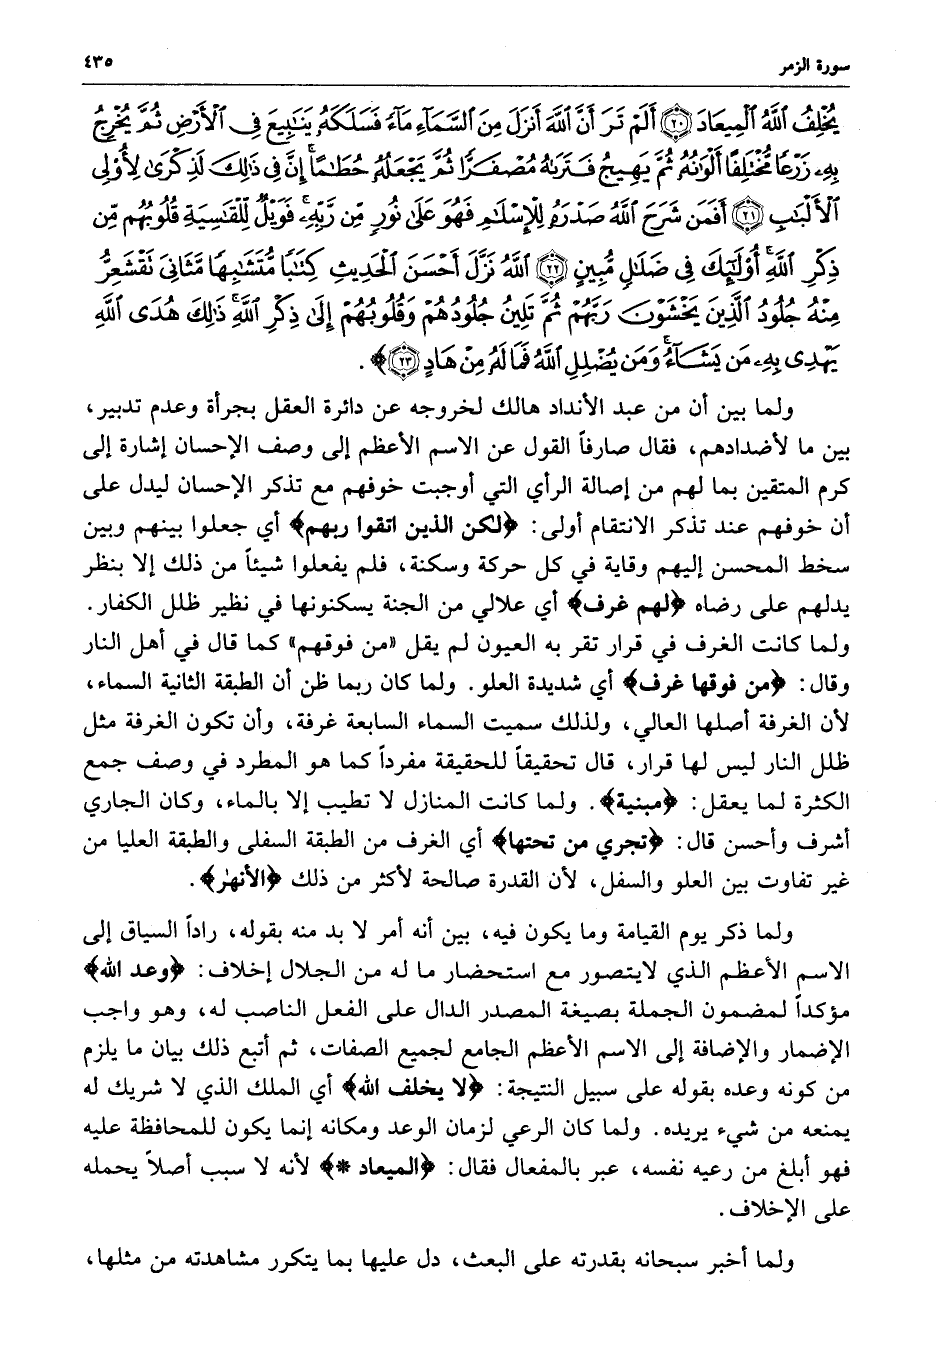 سورة الزمر ٤٣٥
يُخْلِفُ ٱللَّهُ ٱلْمِيعَادَ ﴿٢٠﴾ أَلَمْ تَرَ أَنَّ ٱللَّهَ أَنزَلَ مِنَ ٱلسَّمَآءِ مَآءً فَسَلَكَهُۥ يَنَٰبِيعَ فِى ٱلْأَرْضِ ثُمَّ يُخْرِجُ
بِهِۦ زَرْعًا مُّخْتَلِفًا أَلْوَٰنُهُۥ ثُمَّ يَهِيجُ فَتَرَىٰهُ مُصْفَرًّا ثُمَّ يَجْعَلُهُۥ حُطَٰمًا ۚ إِنَّ فِى ذَٰلِكَ لَذِكْرَىٰ لِأُو۟لِى
ٱلْأَلْبَٰبِ ﴿٢١﴾ أَفَمَن شَرَحَ ٱللَّهُ صَدْرَهُۥ لِلْإِسْلَٰمِ فَهُوَ عَلَىٰ نُورٍ مِّن رَّبِّهِۦ ۚ فَوَيْلٌ لِّلْقَٰسِيَةِ قُلُوبُهُم مِّن
ذِكْرِ ٱللَّهِ ۚ أُو۟لَٰٓئِكَ فِى ضَلَٰلٍ مُّبِينٍ ﴿٢٢﴾ ٱللَّهُ نَزَّلَ أَحْسَنَ ٱلْحَدِيثِ كِتَٰبًا مُّتَشَٰبِهًا مَّثَانِىَ تَقْشَعِرُّ
مِنْهُ جُلُودُ ٱلَّذِينَ يَخْشَوْنَ رَبَّهُمْ ثُمَّ تَلِينُ جُلُودُهُمْ وَقُلُوبُهُمْ إِلَىٰ ذِكْرِ ٱللَّهِ ۚ ذَٰلِكَ هُدَى ٱللَّهِ
يَهْدِى بِهِۦ مَن يَشَآءُ ۚ وَمَن يُضْلِلِ ٱللَّهُ فَمَا لَهُۥ مِنْ هَادٍ ﴿٢٣﴾﴾.
ولما بين أن من عبد الأنداد هالك لخروجه عن دائرة العقل بجرأة وعدم تدبير،
بين ما لأضدادهم، فقال صارفاً القول عن الاسم الأعظم إلى وصف الإحسان إشارة إلى
كرم المتقين بما لهم من إصالة الرأي التي أوجبت خوفهم مع تذكر الإحسان ليدل على
أن خوفهم عند تذكر الانتقام أولى: ﴿لكن الذين اتقوا ربهم﴾ أي جعلوا بينهم وبين
سخط المحسن إليهم وقاية في كل حركة وسكنة، فلم يفعلوا شيئاً من ذلك إلا بنظر
يدلهم على رضاه ﴿لهم غرف﴾ أي علالي من الجنة يسكنونها في نظير ظلل الكفار.
ولما كانت الغرف في قرار تقر به العيون لم يقل «من فوقهم» كما قال في أهل النار
وقال: ﴿من فوقها غرف﴾ أي شديدة العلو. ولما كان ربما ظن أن الطبقة الثانية السماء،
لأن الغرفة أصلها العالي، ولذلك سميت السماء السابعة غرفة، وأن تكون الغرفة مثل
ظلل النار ليس لها قرار، قال تحقيقاً للحقيقة مفرداً كما هو المطرد في وصف جمع
الكثرة لما يعقل: ﴿مبنية﴾. ولما كانت المنازل لا تطيب إلا بالماء، وكان الجاري
أشرف وأحسن قال: ﴿تجري من تحتها﴾ أي الغرف من الطبقة السفلى والطبقة العليا من
غير تفاوت بين العلو والسفل، لأن القدرة صالحة لأكثر من ذلك ﴿الأنهٰر﴾.
ولما ذكر يوم القيامة وما يكون فيه، بين أنه أمر لا بد منه بقوله، راداً السياق إلى
الاسم الأعظم الذي لايتصور مع استحضار ما له من الجلال إخلاف: ﴿وعد الله﴾
مؤكداً لمضمون الجملة بصيغة المصدر الدال على الفعل الناصب له، وهو واجب
الإضمار والإضافة إلى الاسم الأعظم الجامع لجميع الصفات، ثم أتبع ذلك بيان ما يلزم
من كونه وعده بقوله على سبيل النتيجة: ﴿لا يخلف الله﴾ أي الملك الذي لا شريك له
يمنعه من شيء يريده. ولما كان الرعي لزمان الوعد ومكانه إنما يكون للمحافظة عليه
فهو أبلغ من رعيه نفسه، عبر بالمفعال فقال: ﴿الميعاد *﴾ لأنه لا سبب أصلاً يحمله
على الإخلاف.
ولما أخبر سبحانه بقدرته على البعث، دل عليها بما يتكرر مشاهدته من مثلها،